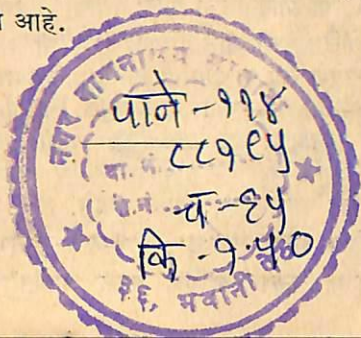 आहे.
नगर वाचनालय
पाने - ११४
८८१९५
वा.
च - ६५
कि - १.५०
३६, भवानी पेठ